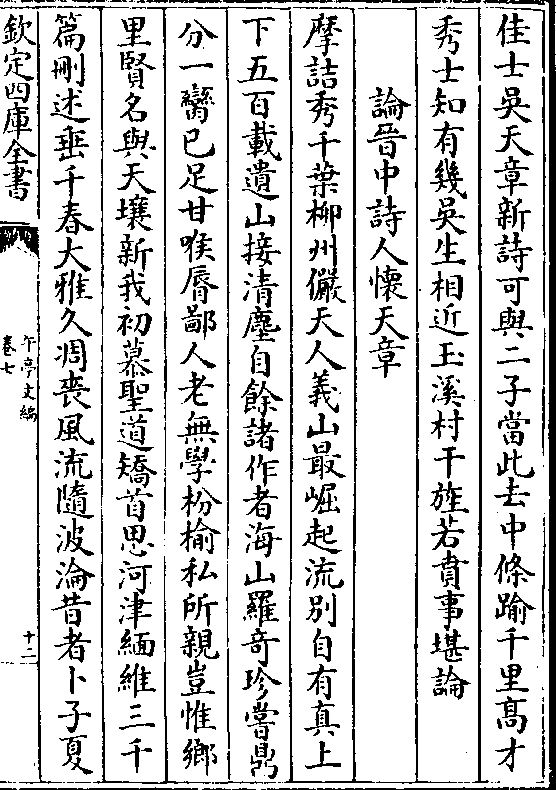 佳士吳天章新詩可與二子當此去中條踰千里髙才
秀士知有幾吳生相近玉溪村干旌若賁事堪論
論晉中詩人懷天章
摩詰秀千葉柳州儼天人義山最崛起流別自有真上
下五百載遺山接清塵自餘諸作者海山羅竒珍嘗鼎
分一臠已足甘喉脣鄙人老無學枌榆私所親豈惟鄉
里賢名與天壤新我初慕聖道矯首思河津緬維三千
篇刪述垂千春大雅久凋喪風流隨波淪昔者卜子夏
欽定四庫全書
午亭文編
卷七
十二